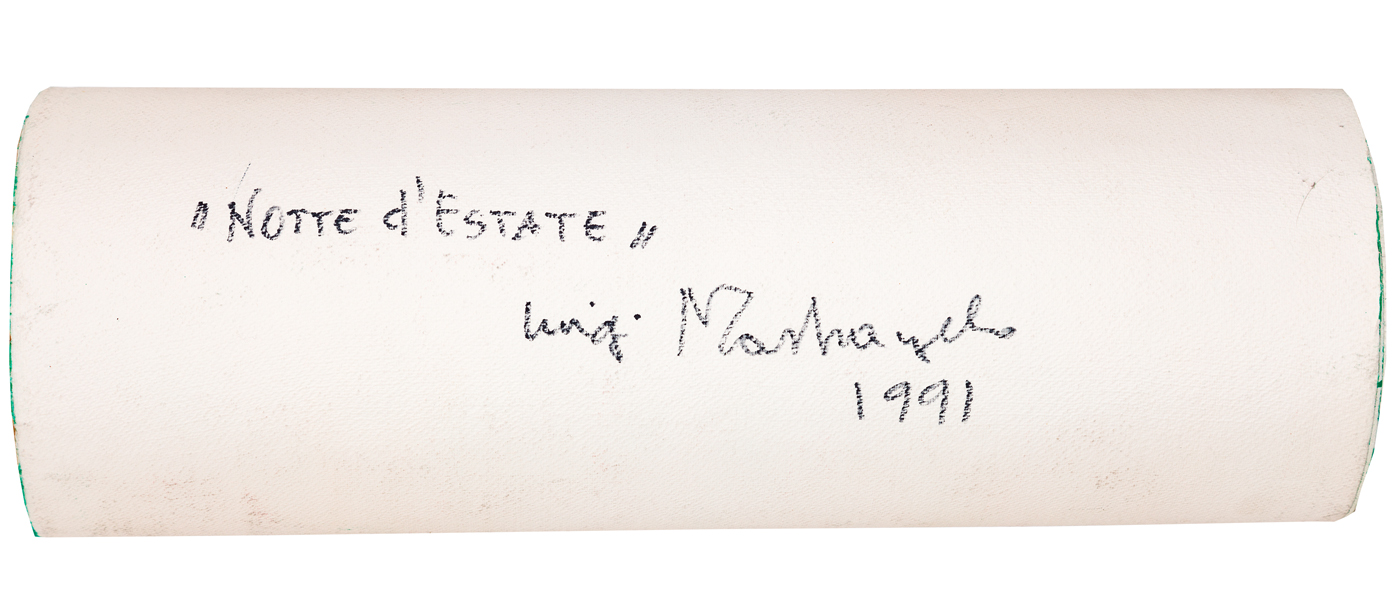 "NOTTE d'ESTATE"
Luigi Mastrangelo
1991